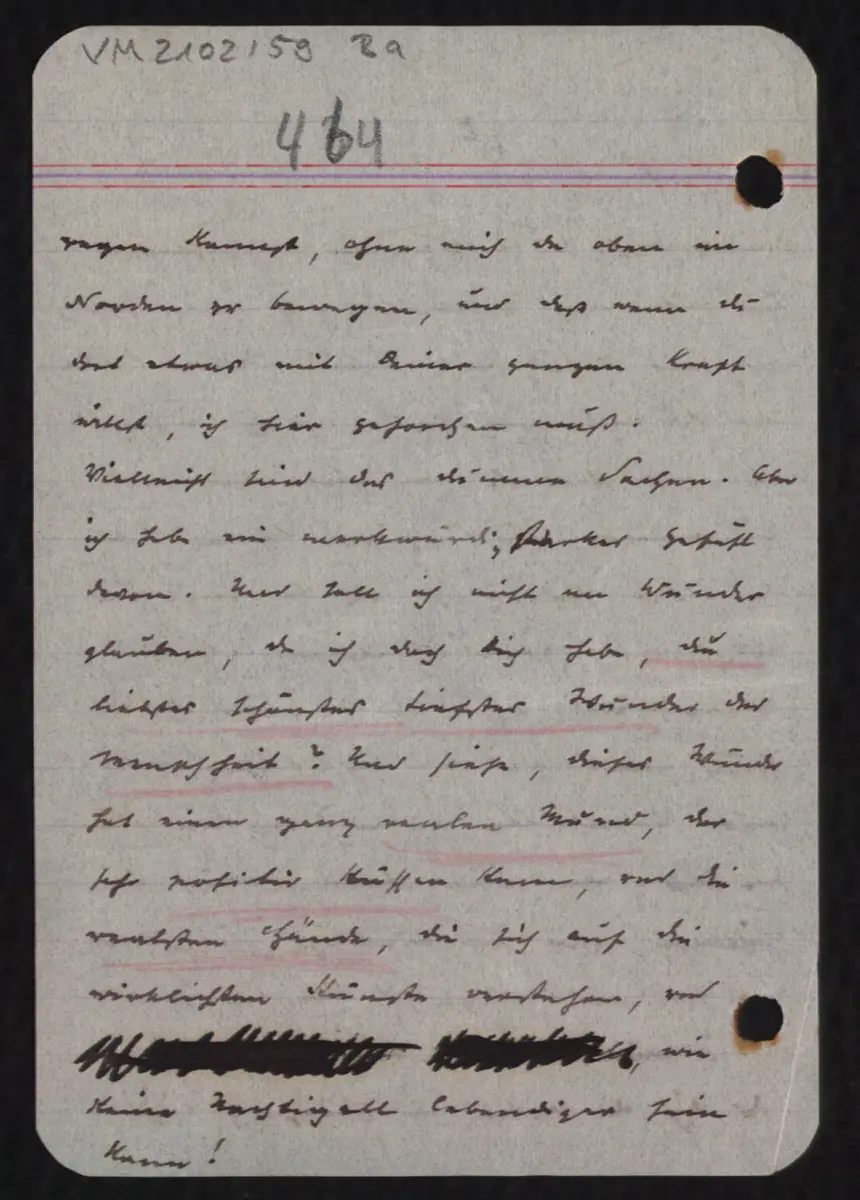 VM 2102/59 Ba
464
regen kannst, ohne mich da oben im
Norden zu bewegen, und daß wenn du
dort etwas mit Deiner ganzen Kraft
willst, ich hier gehorchen muß.
Vielleicht sind das dumme Sachen. Aber
ich habe ein merkwürdig starkes Gefühl
davon. Und soll ich nicht an Wunder
glauben, da ich doch Dich habe, du
liebstes schönstes tiefstes Wunder der
Menschheit? Und siehe, dieses Wunder
hat einen ganz realen Mund, der
sehr positiv küssen kann, und die
realsten Hände, die sich auf die
wirklichsten Künste verstehen, und
wie
keine Nachtigall lebendiger sein
kann!